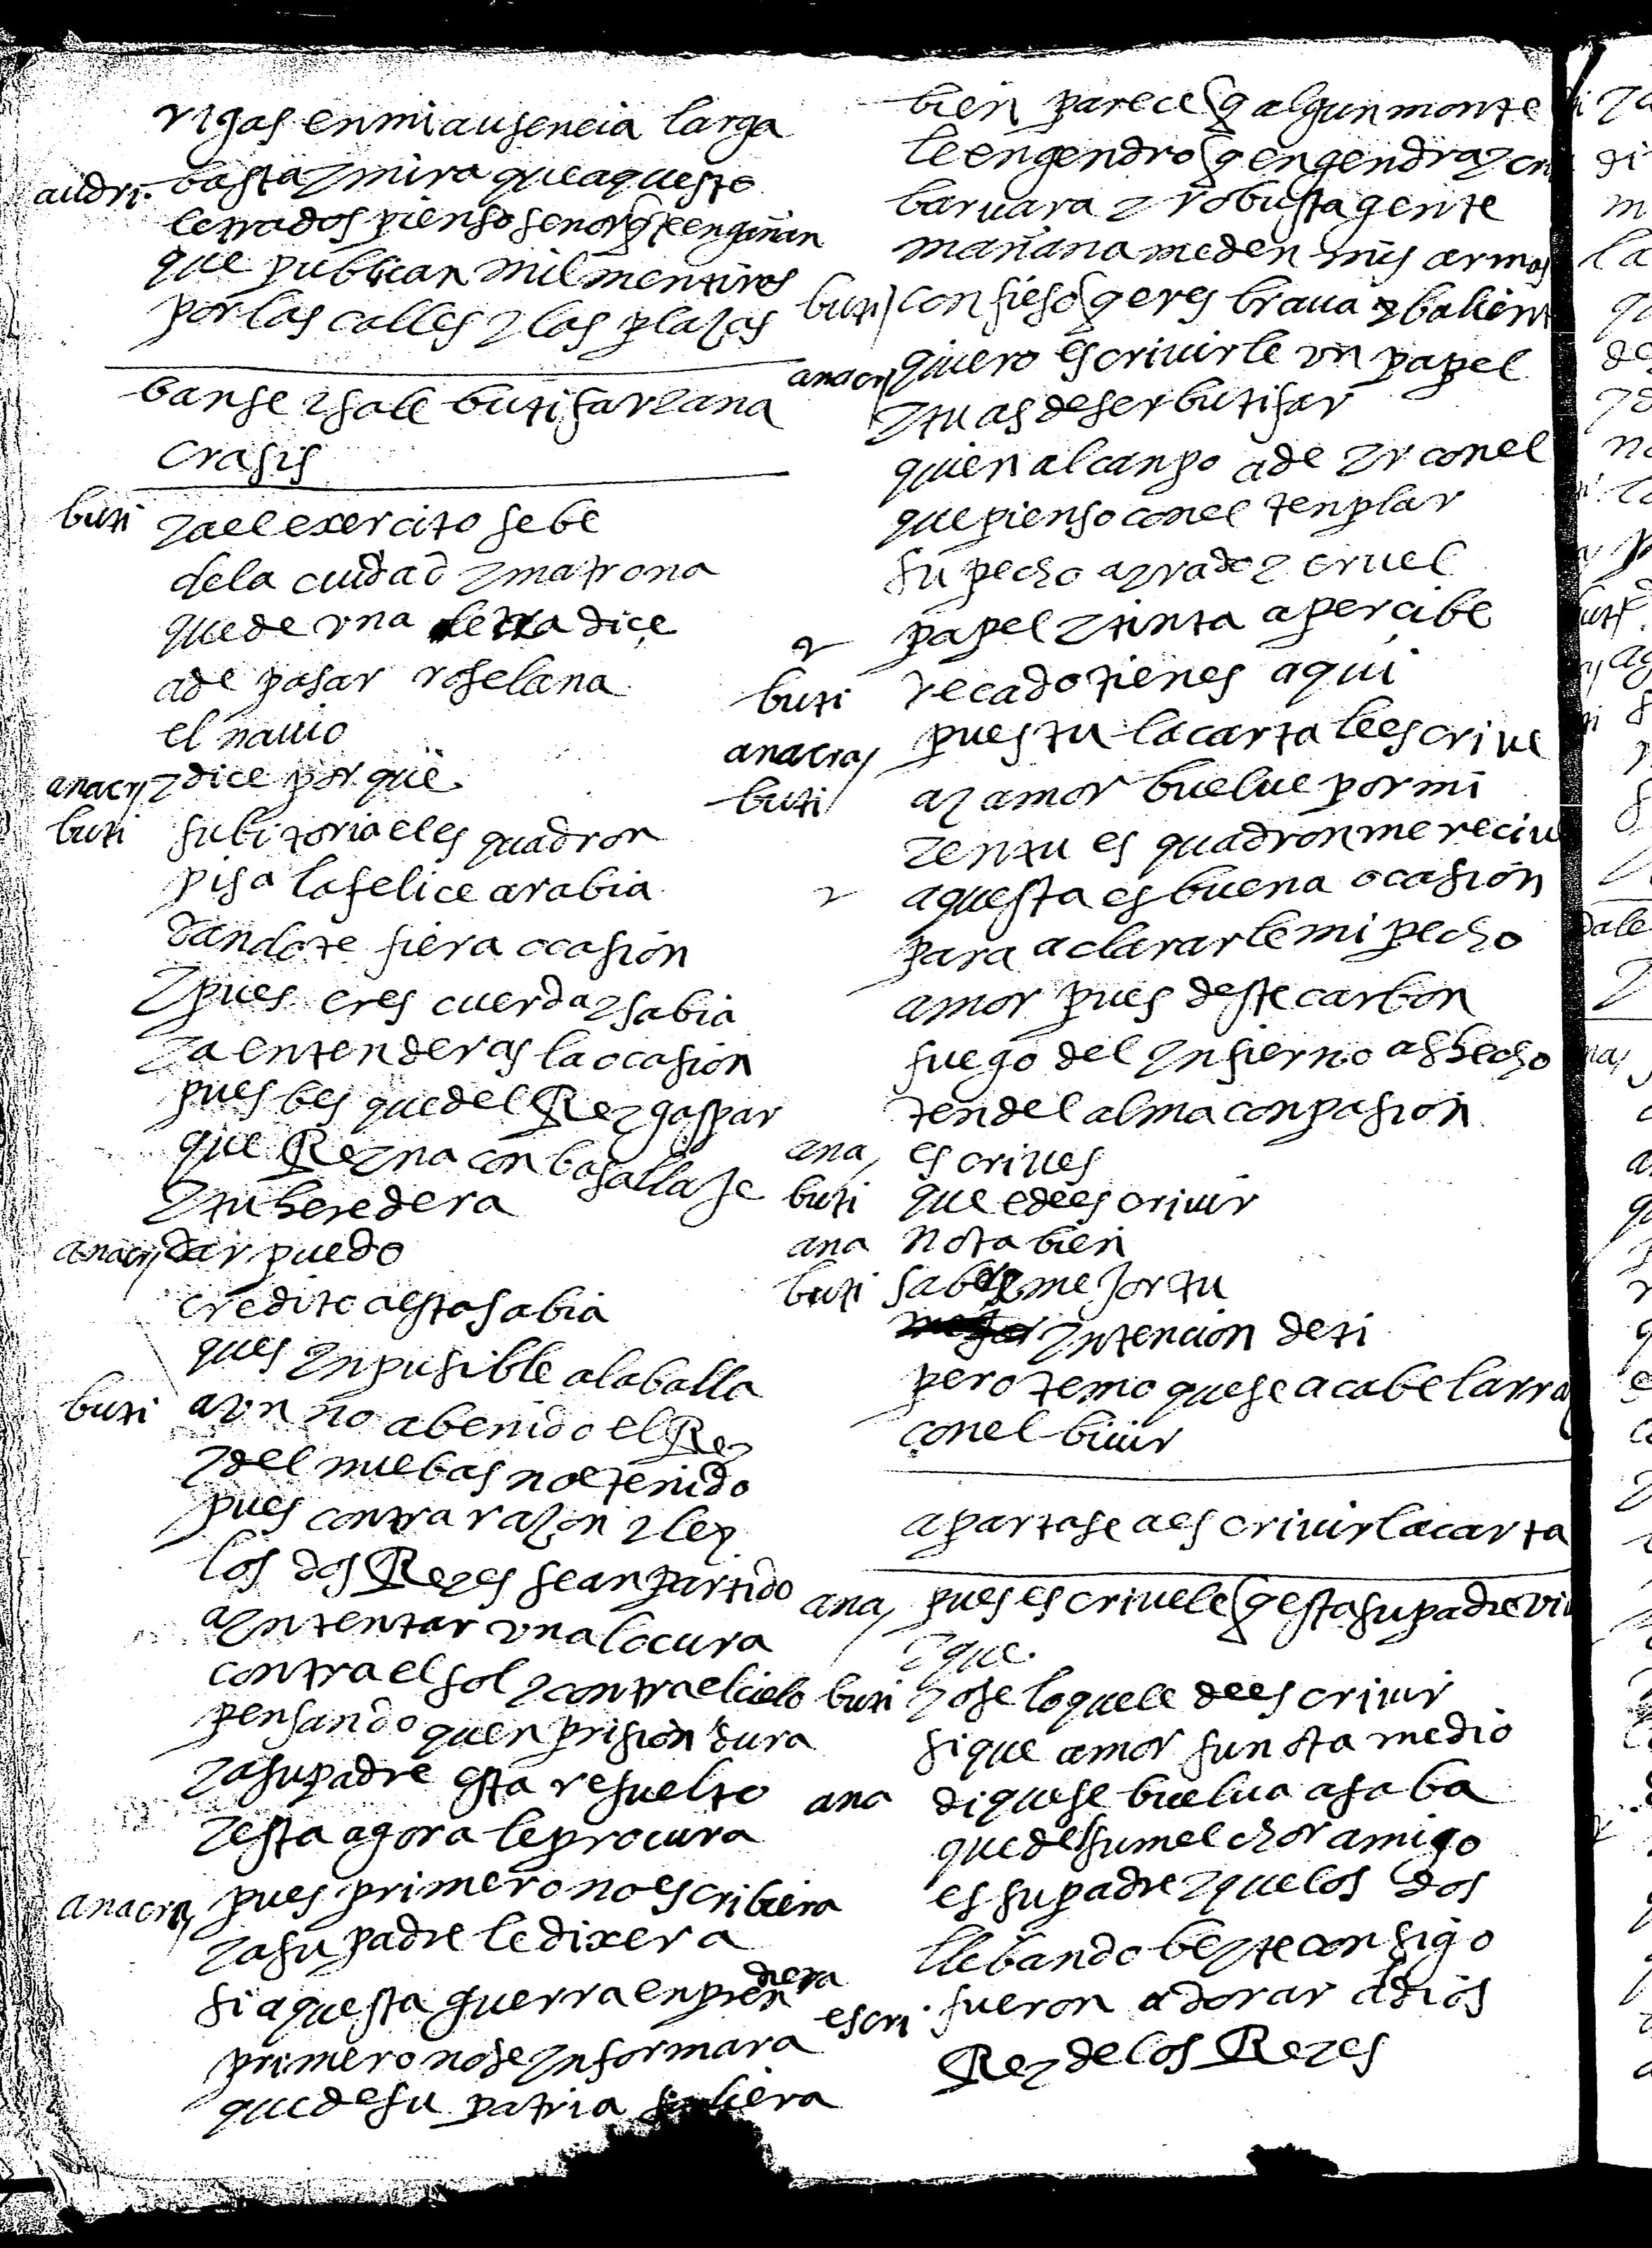 rigas en mi ausencia larga
audri. basta y mira que aqueste
letrados pienso señor q te engañan
que publican mil mentiras
por las calles y las plazas
banse y sale butifar y ana
crasis
buti ya el exercito se be
de la ciudad y matrona
que de una letra dice
a de pasar roselana
el nauio
anacr y dice por que
buti subitoria el esquadron
pisa la felice arabia
dandote fiera ocasion
y pues eres cuerda y sabia
ya entenderas la ocasion
pues bes que del Rey gaspar
que Reyna con basallaje
y tu heredera
anacr dar puedo
credito a esta sabia
ques ynpusible alaballa
buti aun no a benido el Rey
y del nuebas no e tenido
pues contra razon y ley
los dos Reyes se an partido
a yntentar una locura
contra el sol y contra el cielo
pensando quen prision dura
ya su padre esta resuelto
y esta agora le procura
anacra pues primero no escribiera
y a su padre le dixera
si aquesta guerra enprendiera
primero no se ynformara
que de su patria saliera
bien parece q algun monte
le engendro q engendra y cria
baruara y robusta gente
mañana me den mis armas
buti confieso q eres braua y balient
anacr quiero escriuirle un papel
y tu as de ser butifar
quien al canpo a de yr con el
que pienso con el tenplar
su pecho ayrado y cruel
y papel y tinta apercibe
buti recado tienes aqui
anacras pues tu la carta le escriue
buti ay amor buelue por mi
y en tu esquadron me reciue
y aquesta es buena ocasion
para aclararle mi pecho
amor pues deste carbon
fuego del ynfierno as hecho
ten del alma conpasion
ana escriues
buti que e de escriuir
ana nota bien
buti sabes mejor tu
yntencion de ti
pero temo que se acabe
con el biuir
apartase a escriuir la carta
ana pues escriuele q esta su padre viu
y que
buti yo se lo que le de escriuir
si que amor su nota me dio
ana di que se buelua a saba
que del su melchor amigo
es su padre y que los dos
llebando bezte consigo
escri. fueron a dorar a dios
Rey de los Reyes